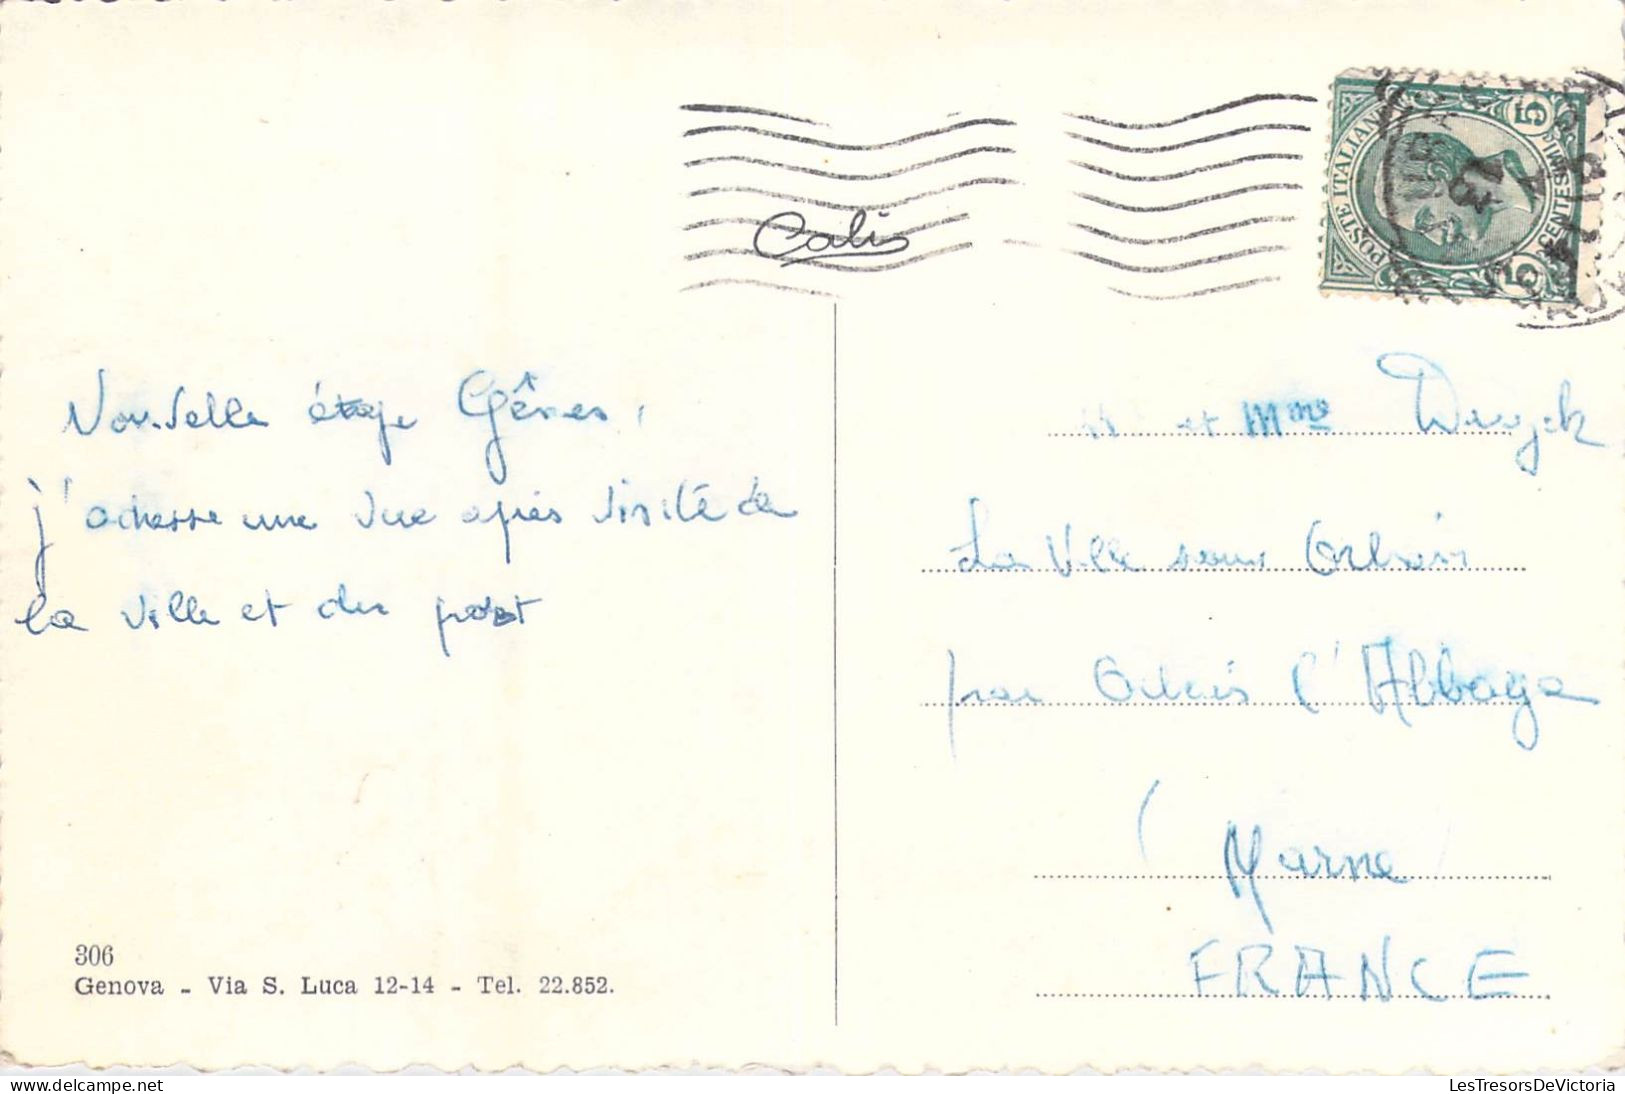 Nouvelle étape Gênes,
j'adresse une vue après visite de
la ville et du port
306
Genova - Via S. Luca 12-14 - Tel. 22.852.
Calis
POSTE ITALIANE
CENTESIMI
5
5
M et Mme
La Ville sous Orbais
par Orbais l'Abbaye
(Marne)
FRANCE
LesTresorsDeVictoria